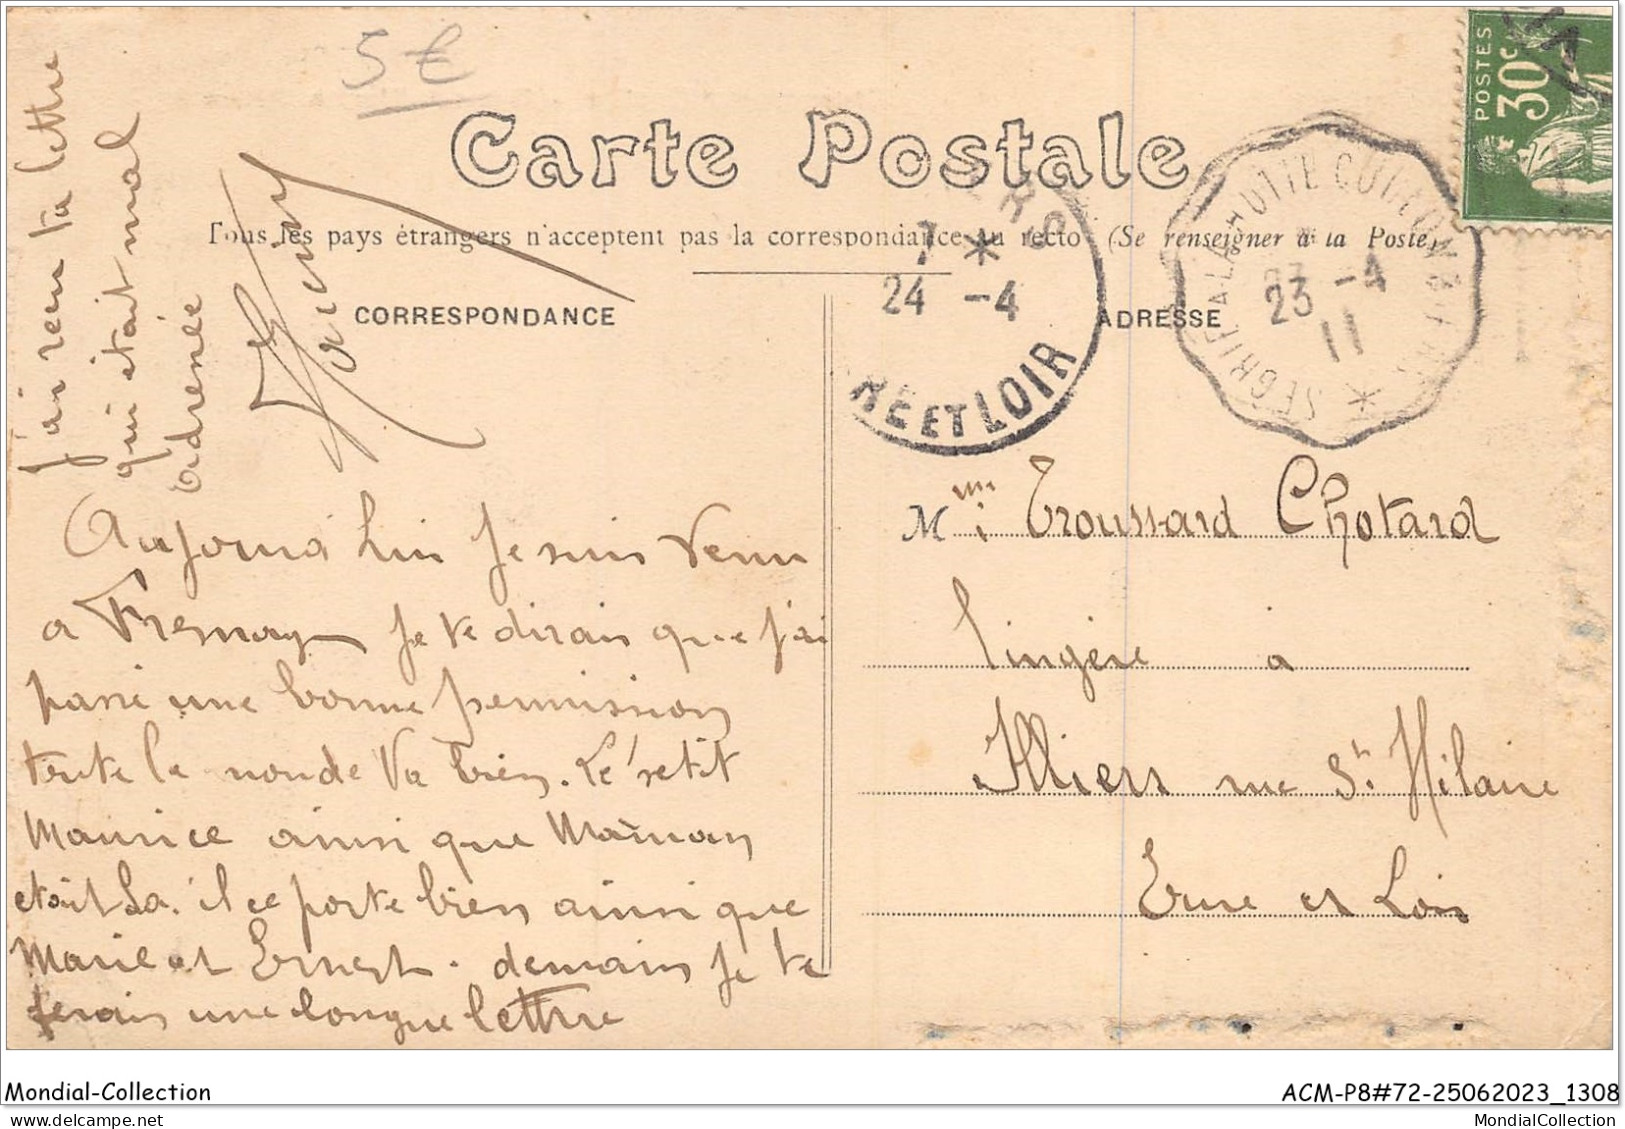 5 €
Carte Postale
Tous les pays étrangers n'acceptent pas la correspondance au recto (Se renseigner à la Poste)
CORRESPONDANCE
ADRESSE
POSTES
30c
7 *
24 -4
RE ET LOIR
SEGRIE A LA HUTTE COULOMB
23 -4
11
j'ai recu ta lettre
qui était mal
adresée
Aujourd'hui Je suis Venu
a Fresnay Je te dirais que j'ai
passé une bonne permission
toute le monde Va bien. Le petit
Maurice ainsi que Maman
etait La. il ce porte bien ainsi que
Marie et Ernest. demain Je te
ferais une longue lettre
Mme Troussard Chotard
lingère a
Illiers rue St Hilaire
Eure et Loir
Mondial-Collection
ACM-P8#72-25062023_1308
MondialCollection